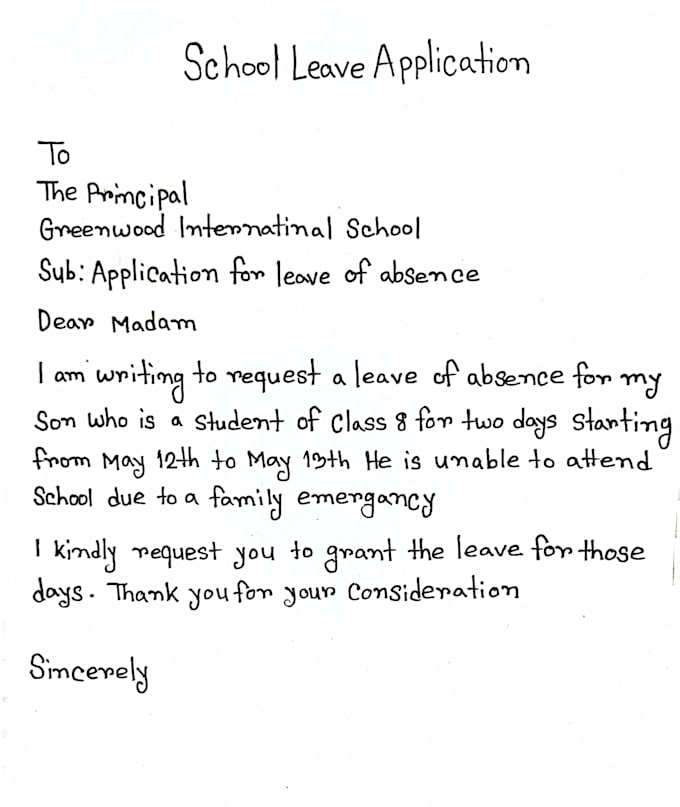 School Leave Application
To
The Principal
Greenwood Internatinal School
Sub: Application for leave of absence
Dear Madam
I am writing to request a leave of absence for my
Son who is a student of Class 8 for two days starting
from May 12th to May 13th He is unable to attend
School due to a family emergancy
I kindly request you to grant the leave for those
days. Thank you for your Consideration
Sincerely